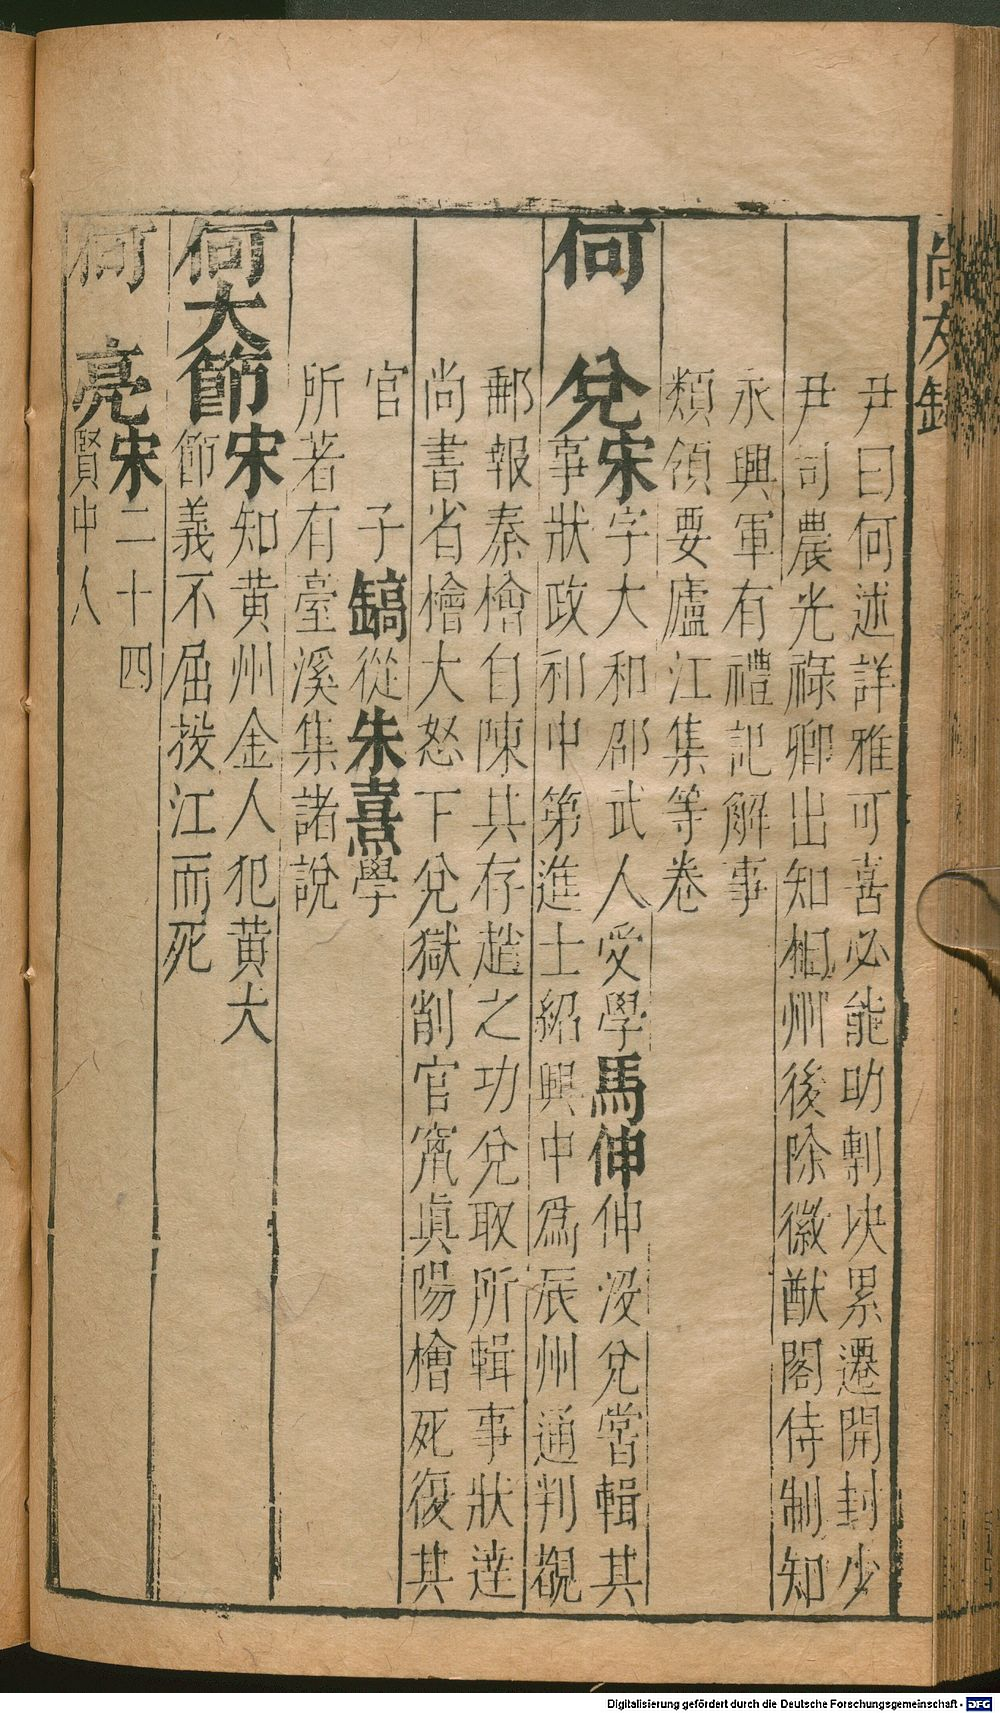 尚友錄
尹曰何述詳雅可喜必能助剸決累遷開封少
尹司農光祿卿出知相州後除徽猷閣侍制知
永興軍有禮記解事
類領要廬江集等卷
何兌宋字大和邵武人受學馬伸伸没兌嘗輯其
事狀政祁中第進士紹興中爲辰州通判覩
郵報秦檜自陳其存趙之功兌取所輯事狀達
尚書省檜大怒下兌獄削官竄眞陽檜死復其
官 子鎬從朱熹學
所著有臺溪集諸說
何大節宋知黄州金人犯黄大
節義不屈投江而死
何亮宋二十四
賢中人
Digitalisierung gefördert durch die Deutsche Forschungsgemeinschaft - DFG